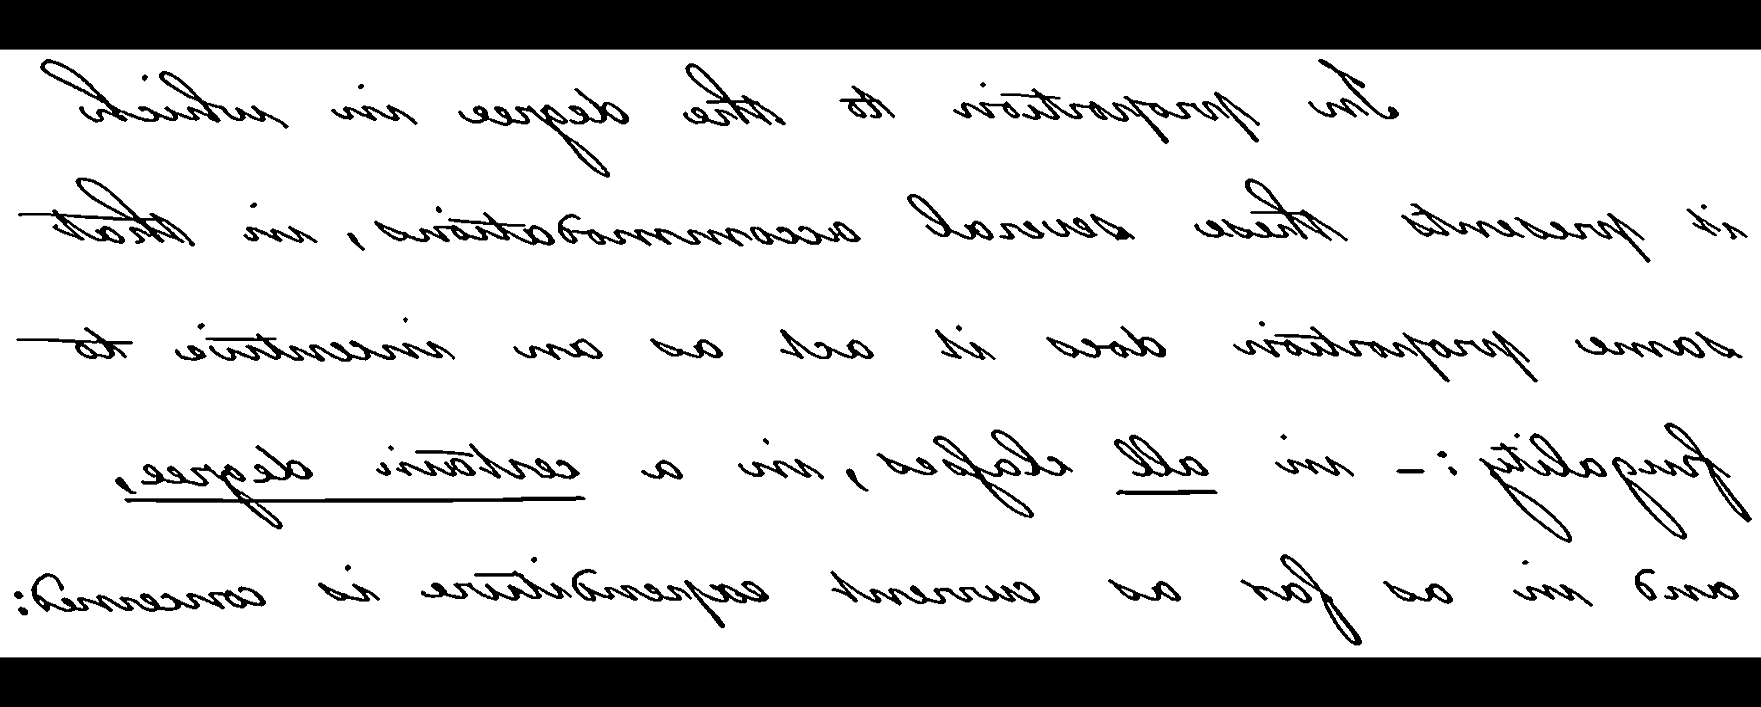 In proportion to the degree in which
it presents these several accommodations, in that
same proportion does it act as an incentive to
frugality :– in all classes, in a certain degree,
and in as far as current expenditure is concerned: